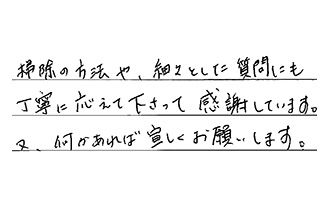 掃除の方法や、細々とした質問にも
丁寧に応えて下さって感謝しています。
又、何かあれば宜しくお願いします。